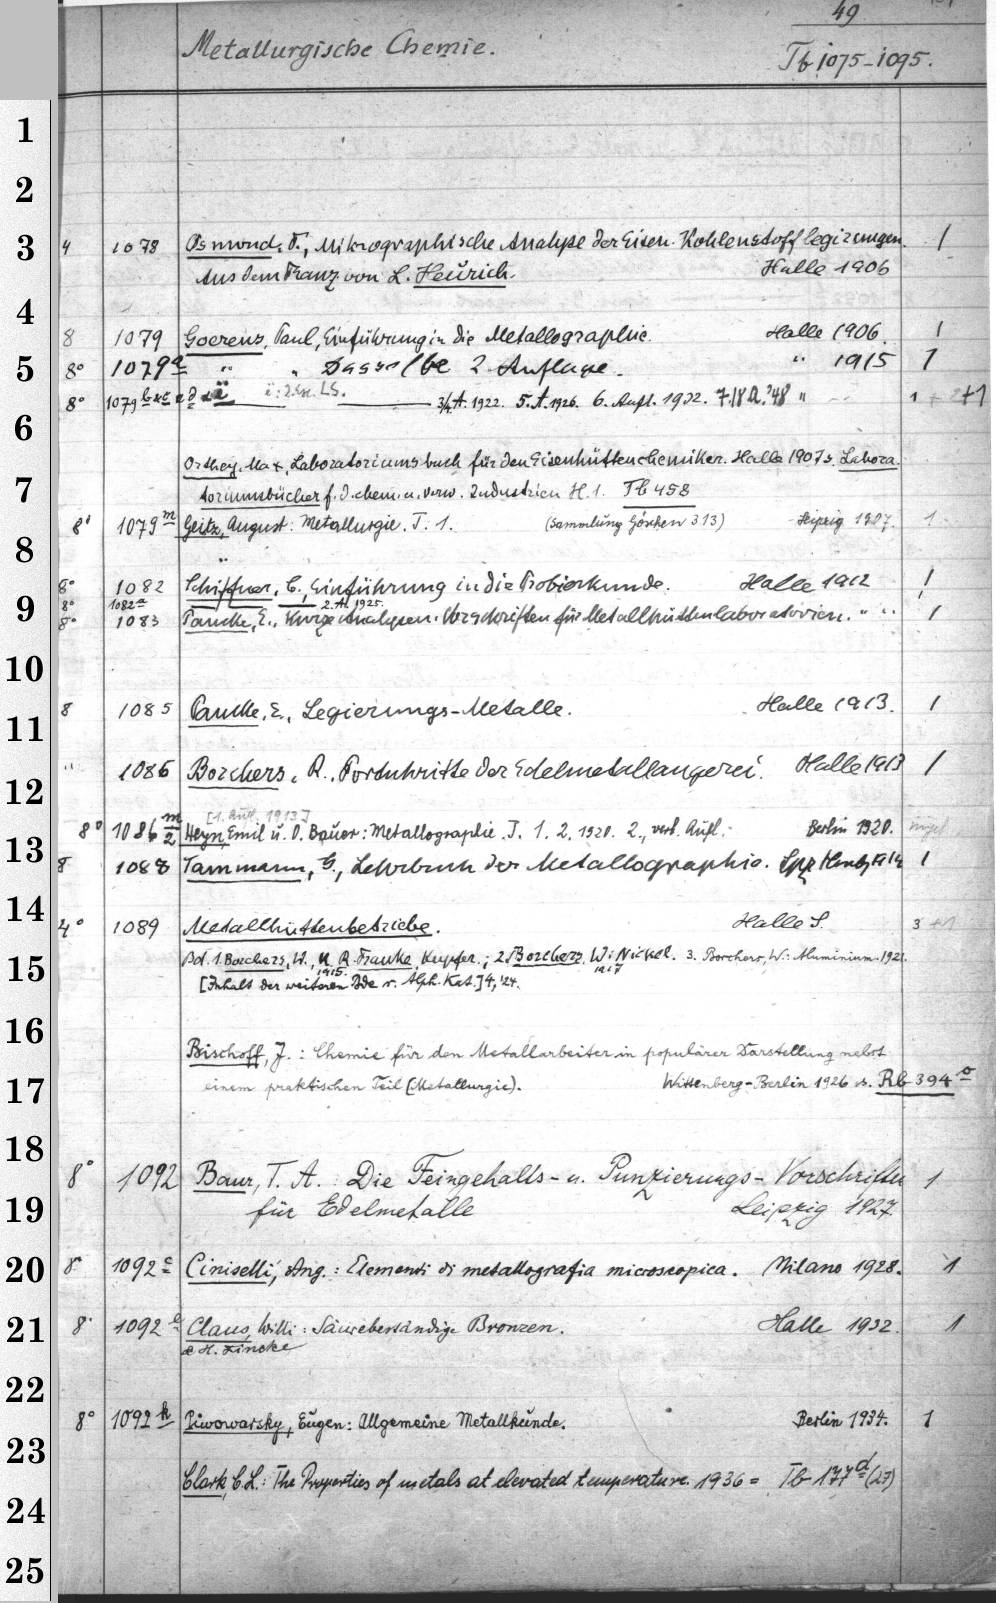 49
Metallurgische Chemie. Tb 1075-1095.
1
2
3 4 1078 Osmond, F., Mikrographische Analyse der Eisen-Kohlenstofflegierungen. 1
Aus dem Franz. von L. Heurich. Halle 1906
4
8 1079 Goerens, Paul, Einführung in die Metallographie. Halle 1906. 1
5 8° 1079a " " Dasselbe 2 Auflage. " 1915 1
8° 1079 b c d ä: 2. Ex. LS. 3/4 A. 1922. 5. A. 1926. 6. Aufl. 1932. 7./8 A. '48 " 1 + 2 + 1
6
Orthey, Max, Laboratoriumsbuch für den Eisenhüttenchemiker. Halle 1907 s. Labora-
7 toriumsbücher f. d. chem. u. verw. Industrien H. 1. Tb 458
8° 1079m Geitz, August: Metallurgie. T. 1. (Sammlung Göschen 313) Leipzig 1907. 1
8
8° 1082 Schiffner, C., Einführung in die Probierkunde. Halle 1912 1
9 8° 1082a 2. A. 1925.
8° 1083 Pancke, E., Kurze Analysen-Vorschriften für Metallhüttenlaboratorien. " " 1
10
8 1085 Pancke, E., Legierungs-Metalle. Halle 1913. 1
11
" 1086 Borchers, R., Fortschritte der Edelmetallaugerei. Halle 1913 1
12
[1. Aufl. 1913]
8° 1086 m/2 Heyn, Emil u. O. Bauer: Metallographie. T. 1. 2. 1920. 2., verb. Aufl. Berlin 1920.
13
8 1088 Tammann, G., Lehrbuch der Metallographie. Lpz 1914 1
14
4° 1089 Metallhüttenbetriebe. Halle S. 3 + 1
15 Bd. 1. Borchers, W., u. R. Franke, Kupfer. 1915.; 2 Borchers, W.: Nickel. 1917 3. Borchers, W.: Aluminium. 1921.
[Inhalt der weiteren Bde s. Alph. Kat.] 4, '24.
16
Bischoff, J.: Chemie für den Metallarbeiter in populärer Darstellung nebst
17 einem praktischen Teil (Metallurgie). Wittenberg-Berlin 1926 s. Rb 394 o
18
8° 1092 Baur, T. A.: Die Feingehalts- u. Punzierungs-Vorschriften 1
19 für Edelmetalle Leipzig 1927.
20 8° 1092 c Ciniselli, Ang.: Elementi di metallografia microscopica. Milano 1928. 1
21 8° 1092 e Claus, Willi: Säurebeständige Bronzen. Halle 1932. 1
& H. Fincke
22
8° 1092 k Piwowarsky, Eugen: Allgemeine Metallkunde. Berlin 1934. 1
23
Clark, C.L.: The Properties of metals at elevated temperature. 1936 = Tb 177 d (27)
24
25